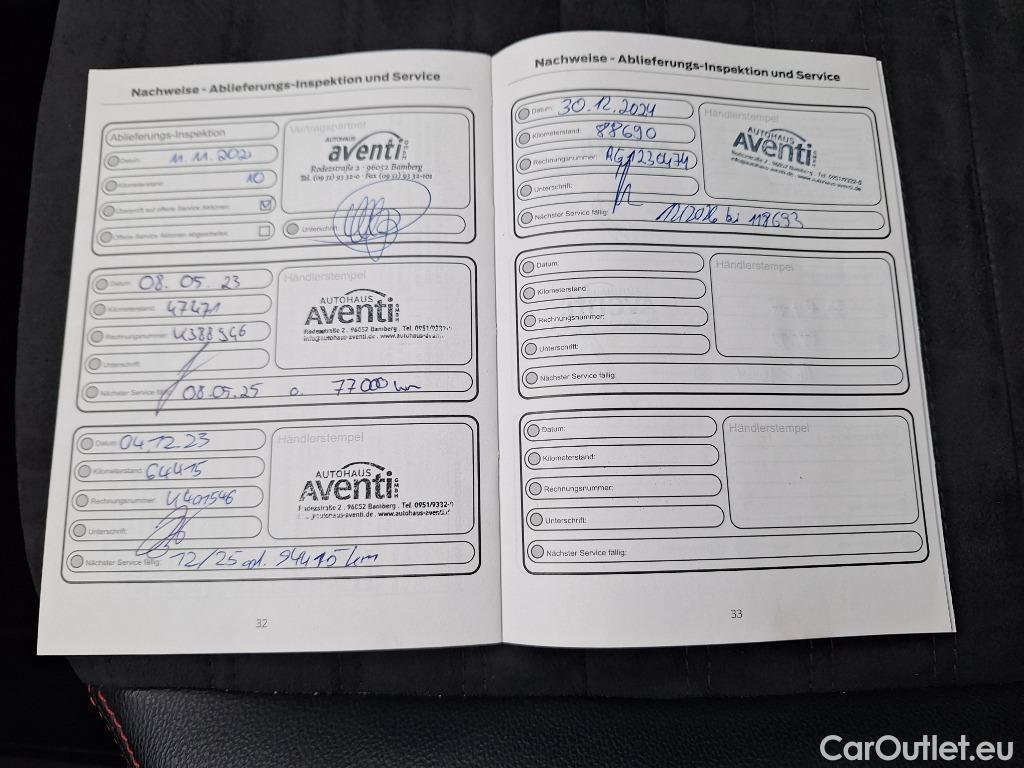 Nachweise - Ablieferungs-Inspektion und Service
Ablieferungs-Inspektion
Datum: 11.11.2021
Kilometerstand: 10
Überprüft auf offene Service Aktionen:
Offene Service Aktionen abgearbeitet:
Vertragspartner
AUTOHAUS
aventi GMBH
Rodezstraße 2 · 96052 Bamberg
Tel. (09 51) 93 32-0 · Fax (09 51) 93 32-101
Unterschrift:
Datum: 08. 05. 23
Kilometerstand: 47471
Rechnungsnummer: U388946
Unterschrift:
Nächster Service fällig: 08.05.25 o. 77000 km
Händlerstempel
AUTOHAUS
Aventi GMBH
Rodezstraße 2 . 96052 Bamberg . Tel. 0951/9332-0
info@autohaus-aventi.de . www.autohaus-aventi.de
Datum: 04.12.23
Kilometerstand: 64415
Rechnungsnummer: U401546
Unterschrift:
Nächster Service fällig: 12/25 od. 94415 km
Händlerstempel
AUTOHAUS
Aventi GMBH
Rodezstraße 2 . 96052 Bamberg . Tel. 0951/9332-0
autohaus-aventi.de . www.autohaus-aventi.de
32
Nachweise - Ablieferungs-Inspektion und Service
Datum: 30.12.2024
Kilometerstand: 88690
Rechnungsnummer: AG1230474
Unterschrift:
Nächster Service fällig: 12/2026 bei 118693
Händlerstempel
AUTOHAUS
Aventi GMBH
Rodezstraße 2 . 96052 Bamberg . Tel. 0951/9332-0
info@autohaus-aventi.de . www.autohaus-aventi.de
Datum:
Kilometerstand:
Rechnungsnummer:
Unterschrift:
Nächster Service fällig:
Händlerstempel
Datum:
Kilometerstand:
Rechnungsnummer:
Unterschrift:
Nächster Service fällig:
Händlerstempel
33
CarOutlet.eu